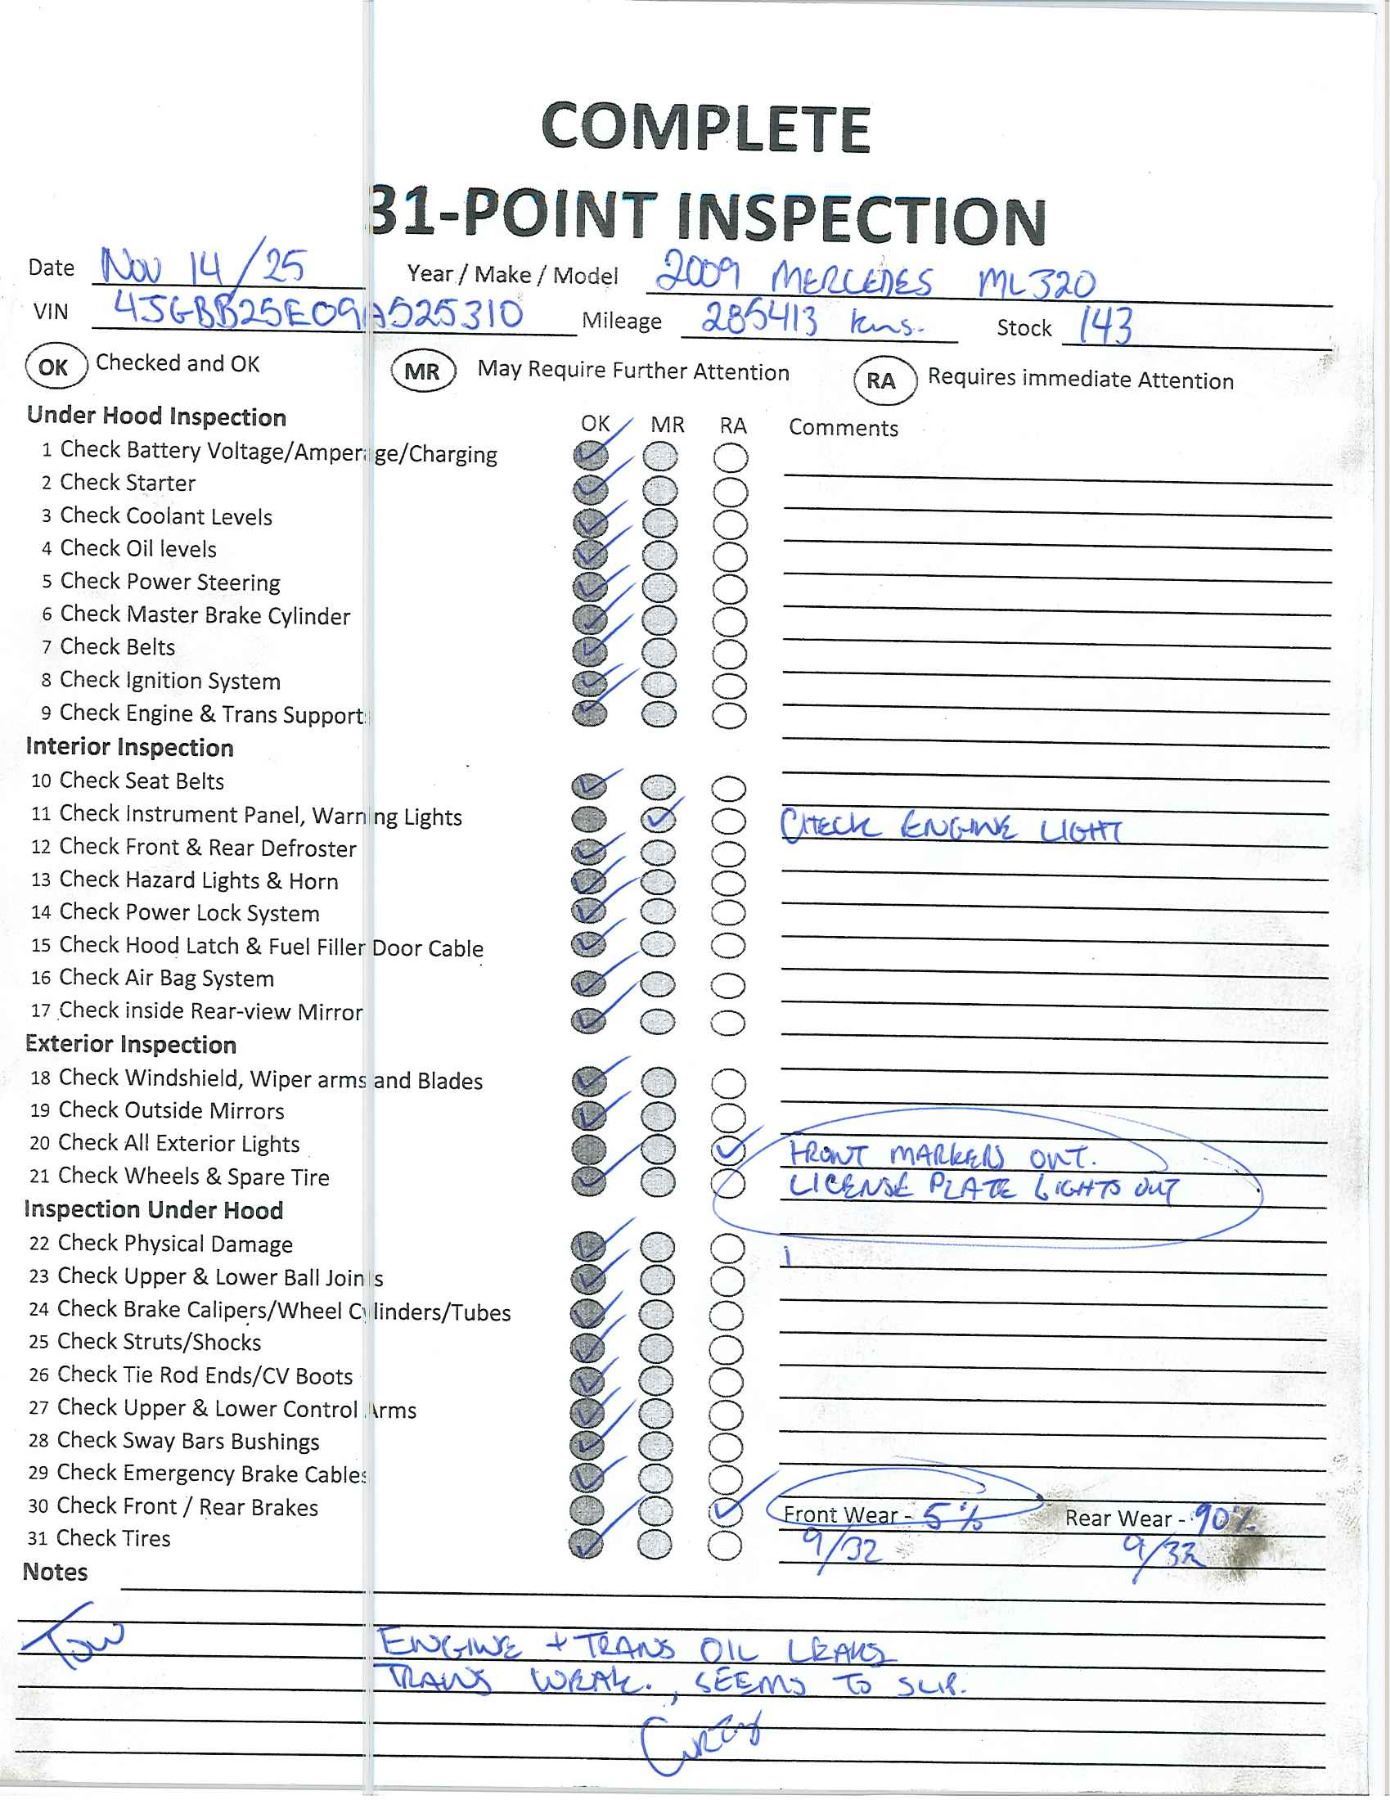 COMPLETE
31-POINT INSPECTION
Date Nov 14/25 Year / Make / Model 2009 MERCEDES ML320
VIN 4JGBB25E09A525310 Mileage 285413 kms. Stock 143
OK Checked and OK MR May Require Further Attention RA Requires immediate Attention
Under Hood Inspection OK MR RA Comments
1 Check Battery Voltage/Amperage/Charging
2 Check Starter
3 Check Coolant Levels
4 Check Oil levels
5 Check Power Steering
6 Check Master Brake Cylinder
7 Check Belts
8 Check Ignition System
9 Check Engine & Trans Support
Interior Inspection
10 Check Seat Belts
11 Check Instrument Panel, Warning Lights CHECK ENGINE LIGHT
12 Check Front & Rear Defroster
13 Check Hazard Lights & Horn
14 Check Power Lock System
15 Check Hood Latch & Fuel Filler Door Cable
16 Check Air Bag System
17 Check inside Rear-view Mirror
Exterior Inspection
18 Check Windshield, Wiper arms and Blades
19 Check Outside Mirrors
20 Check All Exterior Lights FRONT MARKERS OUT.
21 Check Wheels & Spare Tire LICENSE PLATE LIGHTS OUT
Inspection Under Hood
22 Check Physical Damage
23 Check Upper & Lower Ball Joints
24 Check Brake Calipers/Wheel Cylinders/Tubes
25 Check Struts/Shocks
26 Check Tie Rod Ends/CV Boots
27 Check Upper & Lower Control Arms
28 Check Sway Bars Bushings
29 Check Emergency Brake Cables
30 Check Front / Rear Brakes Front Wear - 5% Rear Wear - 90%
31 Check Tires 9/32 9/32
Notes
Tow ENGINE + TRANS OIL LEAKS
TRANS WEAK., SEEMS TO SLIP.